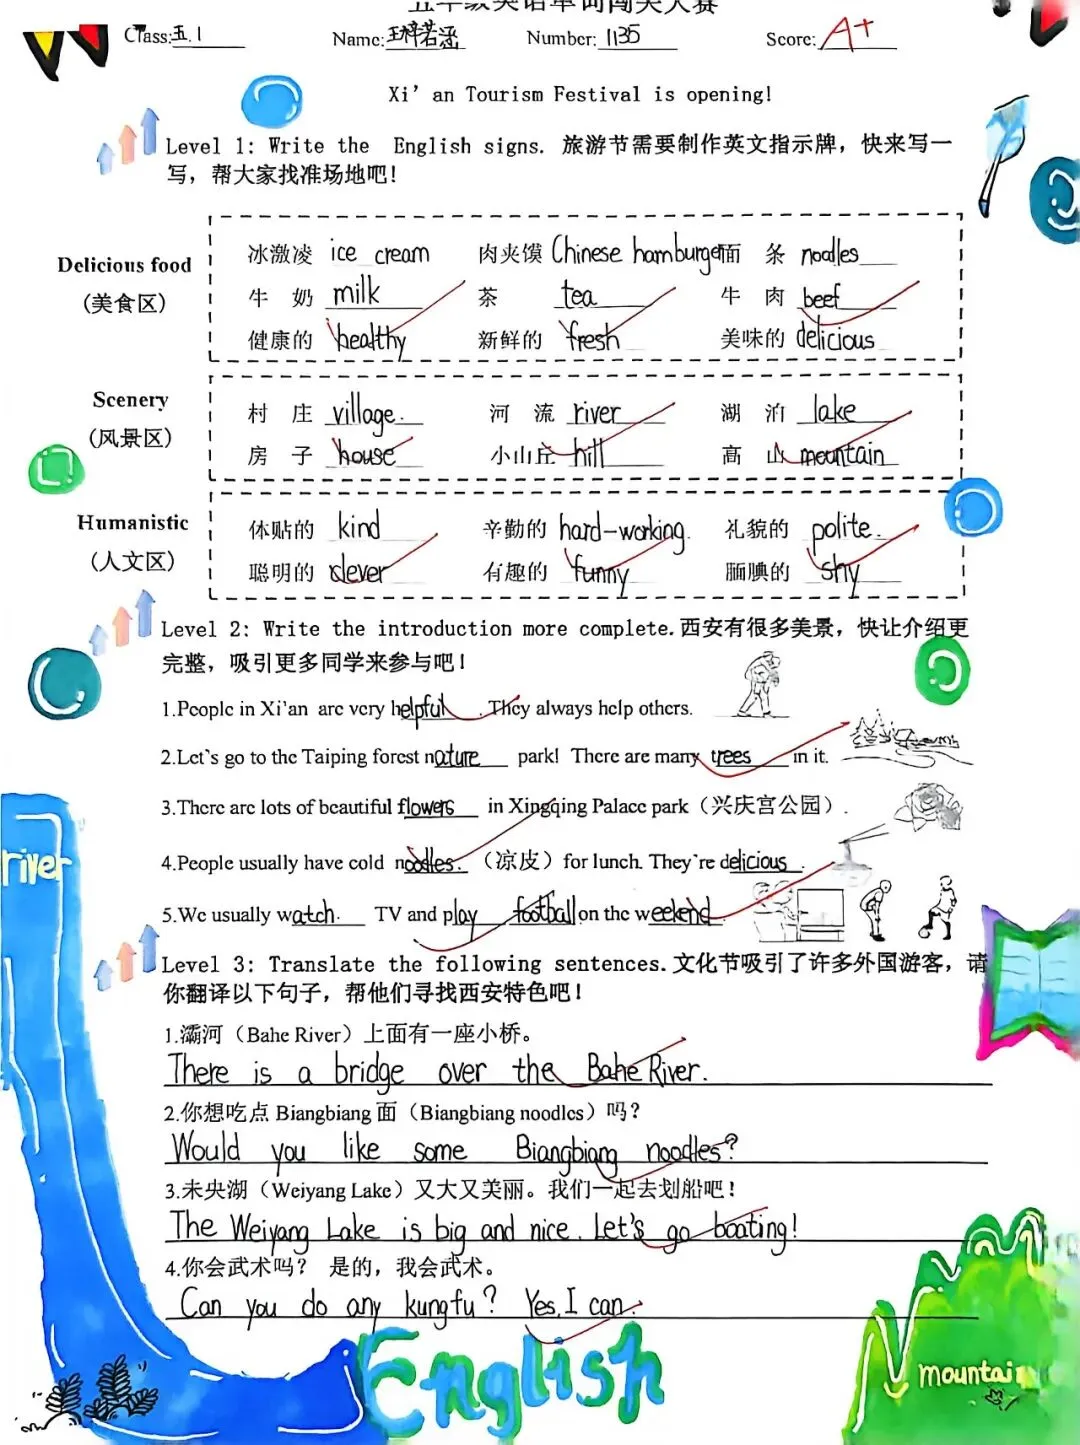 五年级英语单词闯关大赛
Class: 五.1 Name: 王梓若涵 Number: 1135 Score: A+
Xi'an Tourism Festival is opening!
Level 1: Write the English signs. 旅游节需要制作英文指示牌，快来写一
写，帮大家找准场地吧！
Delicious food
(美食区)
冰激凌 ice cream 肉夹馍 Chinese hamburger 面 条 noodles
牛 奶 milk 茶 tea 牛 肉 beef
健康的 healthy 新鲜的 fresh 美味的 delicious
Scenery
(风景区)
村 庄 village. 河 流 river 湖 泊 lake
房 子 house 小山丘 hill 高 山 mountain
Humanistic
(人文区)
体贴的 kind 辛勤的 hard-working. 礼貌的 polite.
聪明的 clever 有趣的 funny 腼腆的 shy
Level 2: Write the introduction more complete. 西安有很多美景，快让介绍更
完整，吸引更多同学来参与吧！
1.People in Xi'an are very helpful. They always help others.
2.Let's go to the Taiping forest nature park! There are many trees in it.
3.There are lots of beautiful flowers in Xingqing Palace park（兴庆宫公园）.
4.People usually have cold noodles.（凉皮）for lunch. They're delicious.
5.We usually watch. TV and play football on the weekend.
Level 3: Translate the following sentences. 文化节吸引了许多外国游客，请
你翻译以下句子，帮他们寻找西安特色吧！
1.灞河（Bahe River）上面有一座小桥。
There is a bridge over the Bahe River.
2.你想吃点 Biangbiang 面（Biangbiang noodles）吗？
Would you like some Biangbiang noodles?
3.未央湖（Weiyang Lake）又大又美丽。我们一起去划船吧！
The Weiyang Lake is big and nice. Let's go boating!
4.你会武术吗？ 是的，我会武术。
Can you do any kungfu? Yes, I can.
river
English
mountain